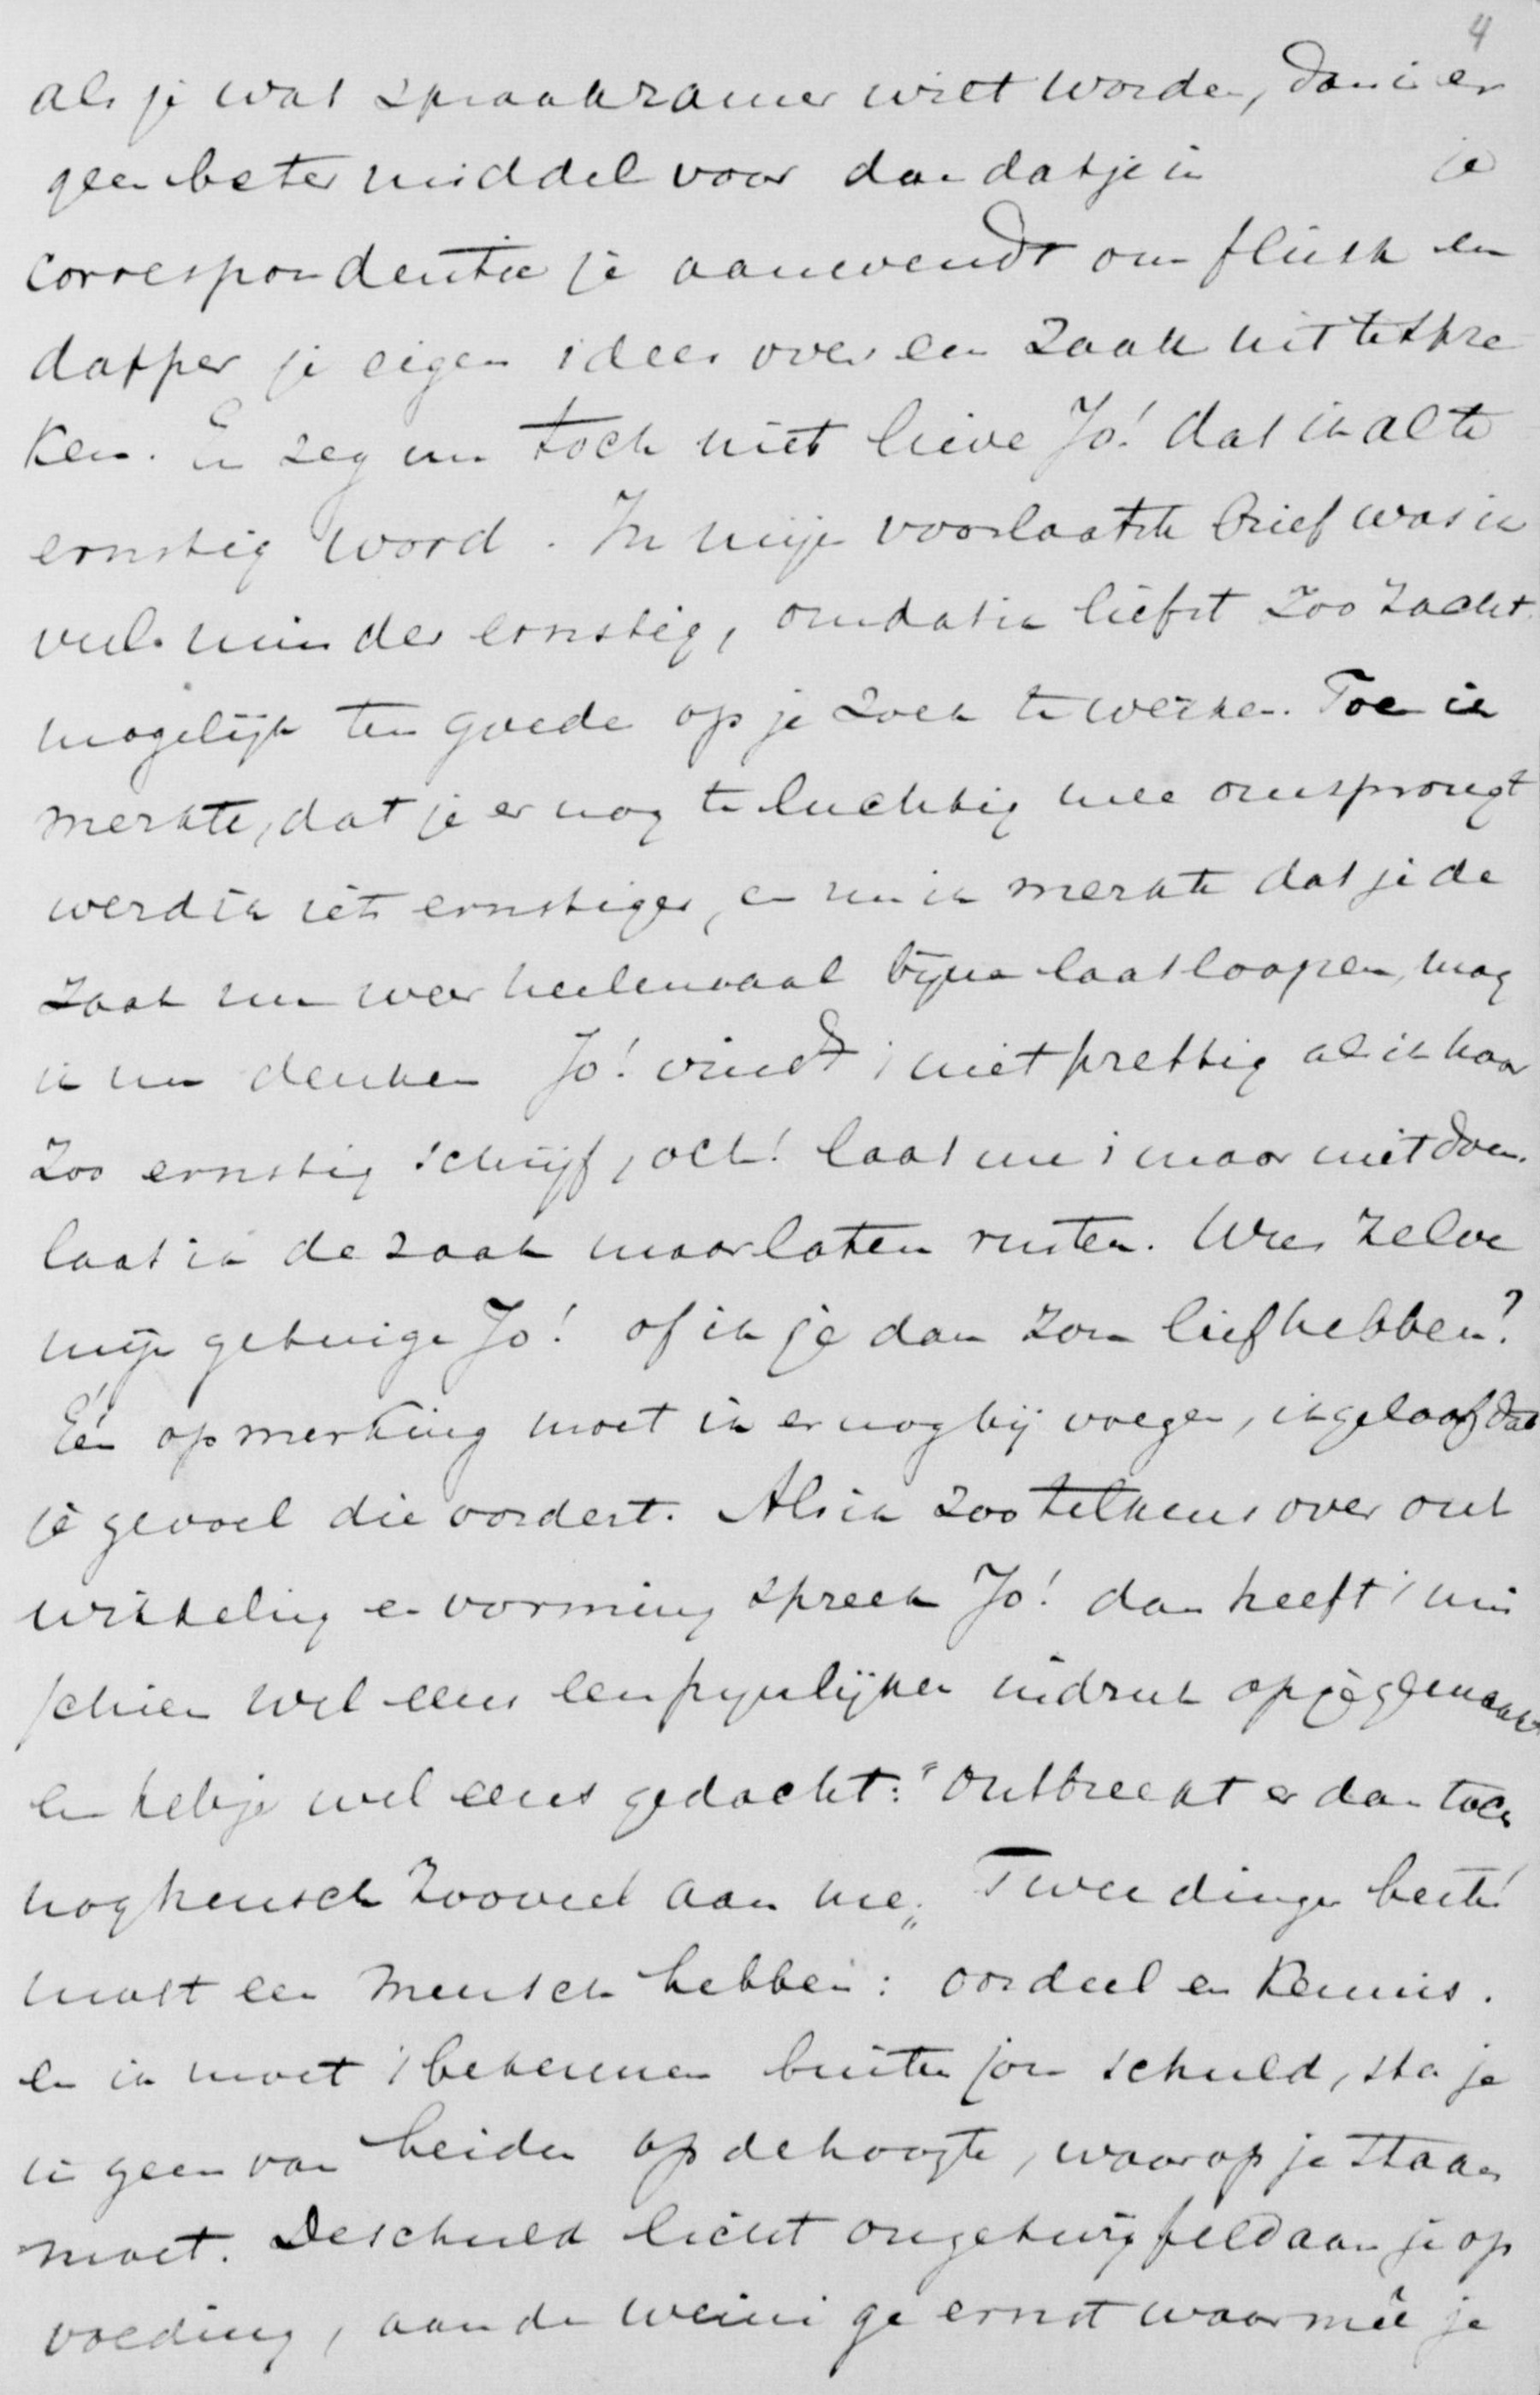 4
als je wat spraakzamer wilt worden, dan is er
geen beter middel voor dan dat je in je
correspondentie je aanwendt om flink en
dapper je eigen idees over een zaak uit te spre
ken. En zeg nu toch niet lieve Jo! dat ik al te
ernstig word. In mijn voorlaatste brief was ik
veel minder ernstig, omdat ik liefst zoo zacht
mogelijk ten goede op je zoek te werken. Toen ik
merkte, dat je er nog te luchtig mee omsprongt
werd ik iets ernstiger, en nu ik merkte dat je de
zaak nu weer heelemaal bijna laat loopen, mag
ik nu denken Jo! vindt 't niet prettig als ik haar
zoo ernstig schrijf, och! laat me 't maar niet doen.
laat ik de zaak maar laten rusten. Wees zelve
mijn getuige Jo! of ik je dan zou liefhebben?
Één opmerking moet ik er nog bij voegen, ik geloof dat
je gevoel die vordert. Als ik zoo telkens over ont
wikkeling en vorming spreek Jo! dan heeft 't mis
schien wel eens een pijnlijken indruk op je gemaakt
en heb je wel eens gedacht: "Ontbreekt er dan toch
nog heusch zooveel aan me„ Twee dingen beste!
moet een mensch hebben: oordeel en kennis.
en ik moet 't bekennen buiten jou schuld, sta je
in geen van beiden op de hoogte, waarop je staan
moet. De schuld licht ongetwijfeld aan je op
voeding, aan de weinige ernst waarmêe je